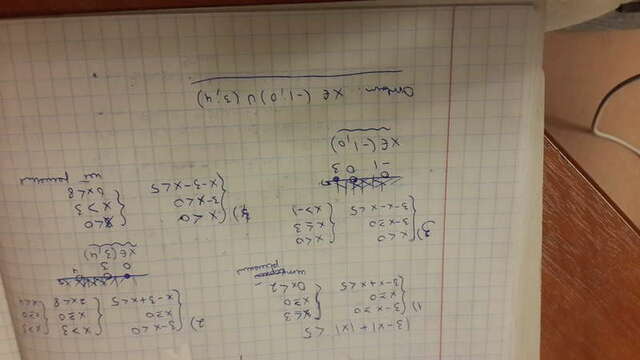 |3-x| + |x| < 5
1) { 3-x ≥ 0
x ≥ 0
3-x+x < 5
{ x ≤ 3
x ≥ 0
0x < 2
решения
2) { 3-x < 0
x ≥ 0
x-3+x < 5
{ x > 3
x ≥ 0
2x < 8
{ x > 3
x ≥ 0
x < 4
0 3 4
x ∈ (3; 4)
3) { x < 0
3-x ≥ 0
3-x-x < 5
{ x < 0
x ≤ 3
x > -1
-1 0 3
x ∈ (-1; 0)
4) { x < 0
3-x < 0
x-3-x < 5
{ x < 0
x > 3
0x < 8
нет решения
Ответ: x ∈ (-1; 0) ∪ (3; 4)